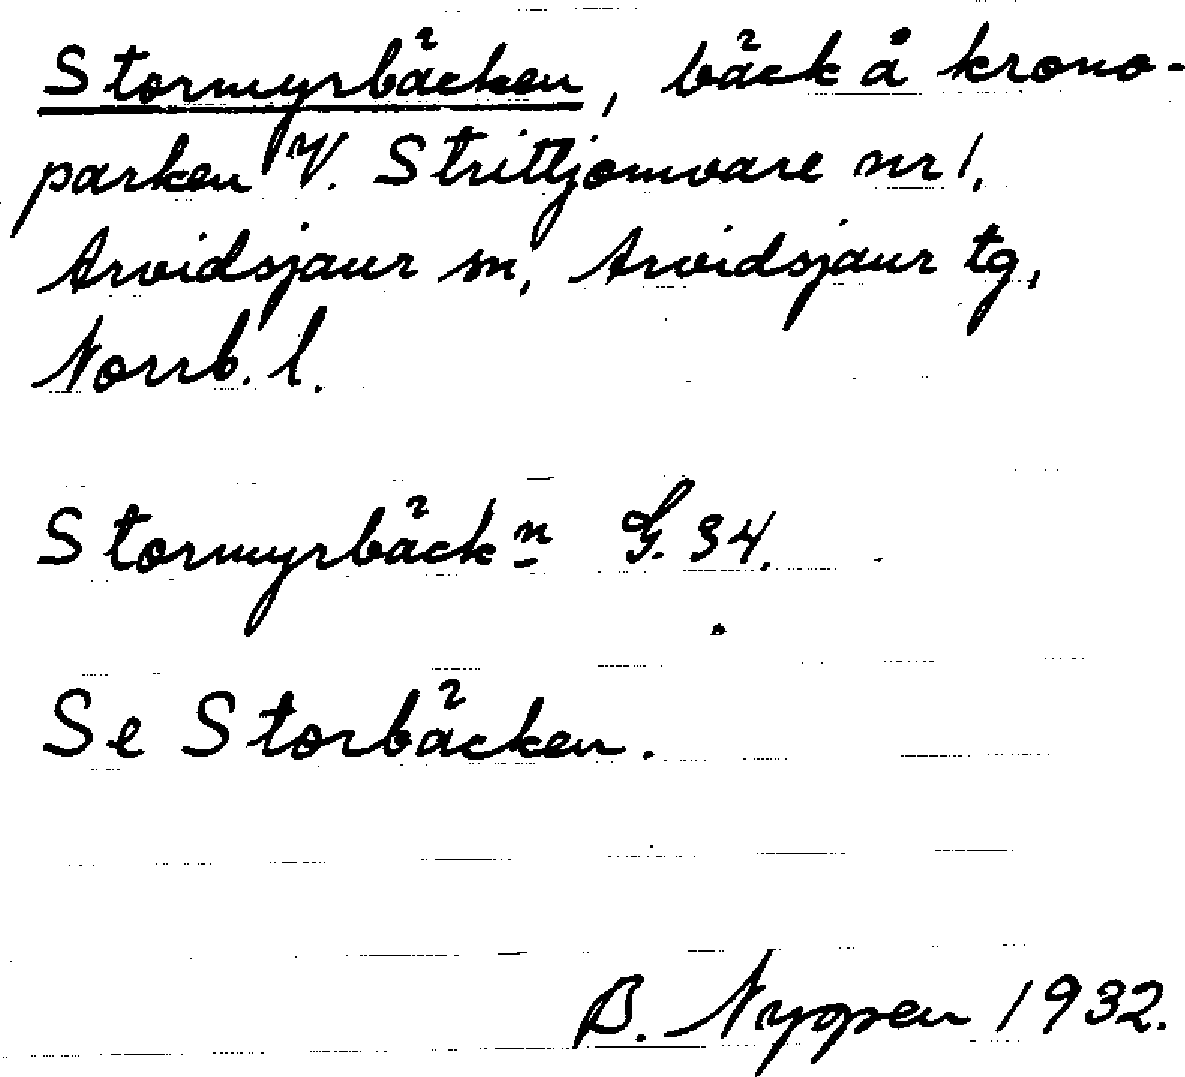 Stormyrbäcken, bäck å krono-
parken V. Strittjomvare nr 1,
Arvidsjaur sn, Arvidsjaur tg,
Norrb. l.
Stormyrbäckn G. 34.
Se Storbäcken.
B. Nyopen 1932.